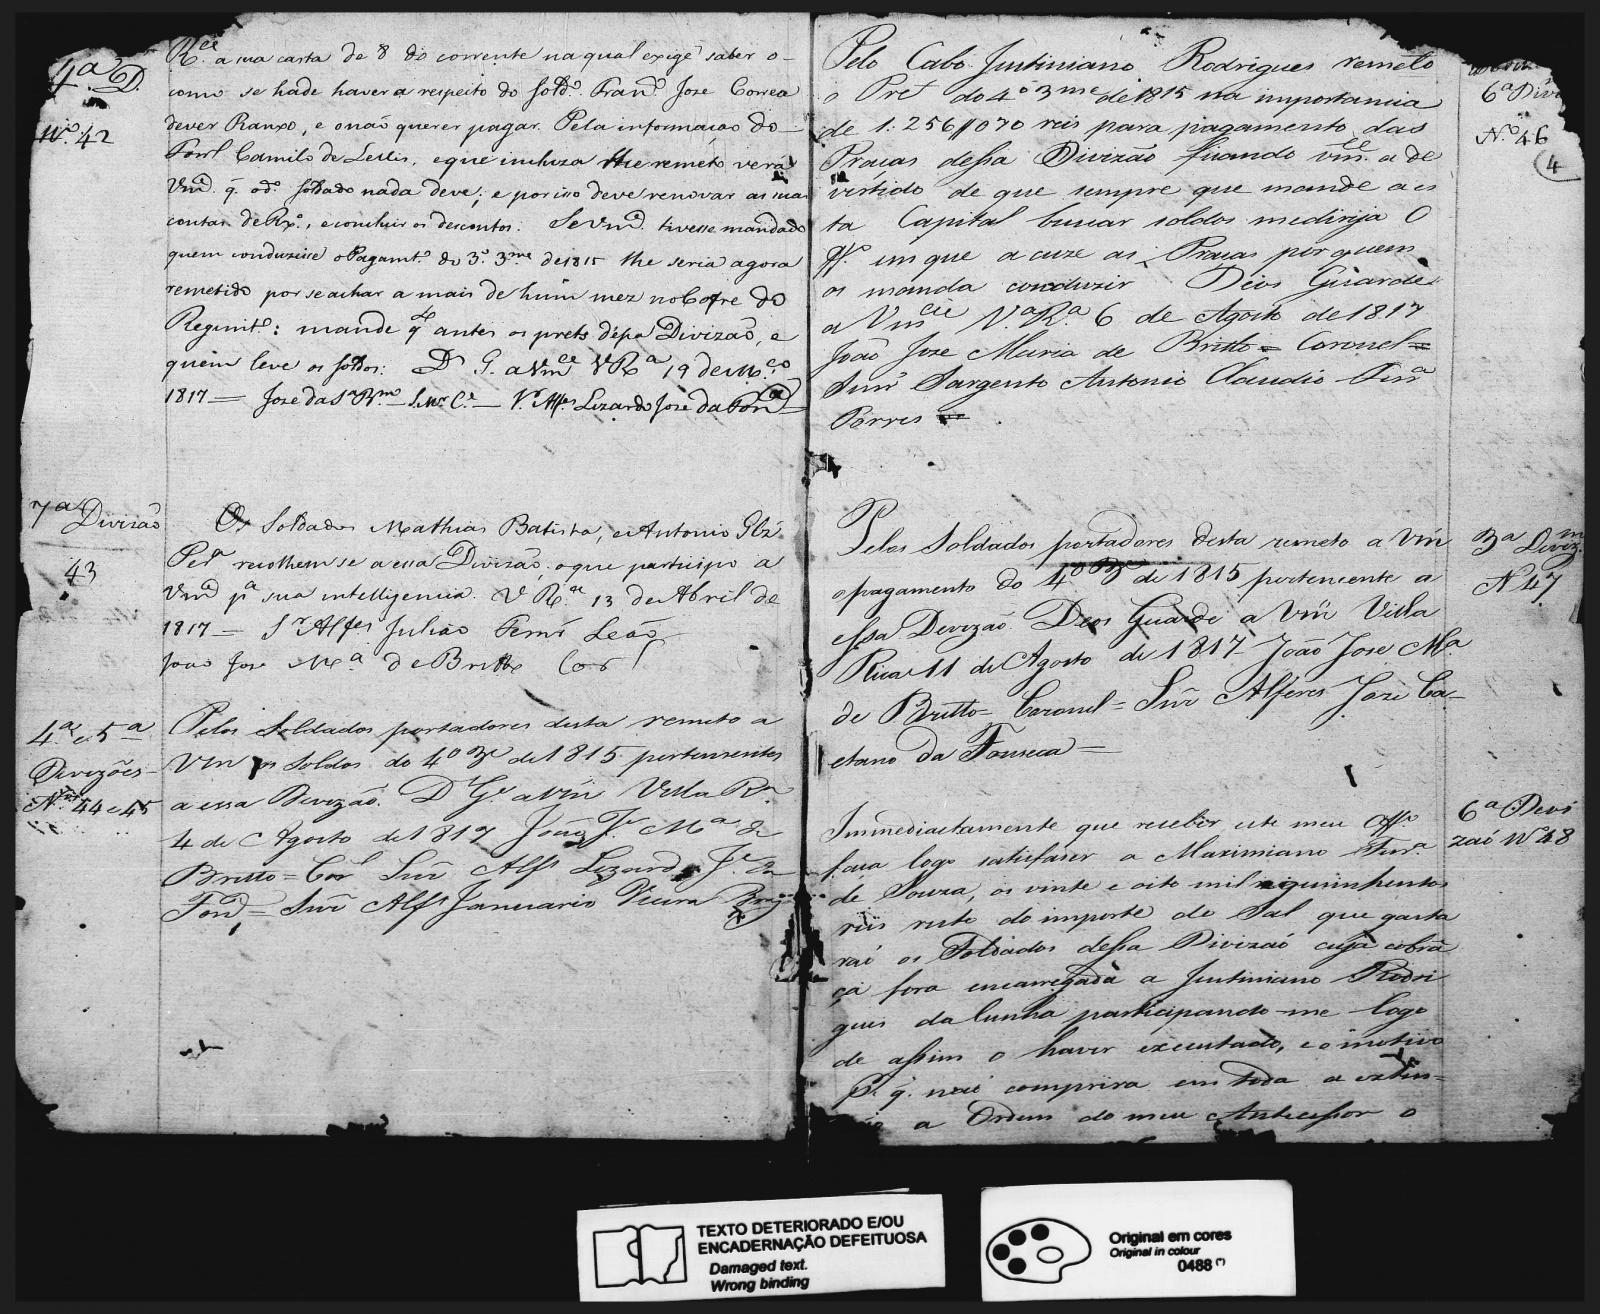 4ª D.
Nº 42
R.ce a sua carta de 8 do corrente na qual exige saber o
como se hade haver a respeito do Sold.º Fran.º Jose Correa
dever Ranxo, e o não querer pagar. Pela informacao do
Camilo de Lellis, e que incluza lhe remeto verá
Vm.ce q. o d.º Soldado nada deve; e por isso deve renovar as suas
contas de Rx.º, e concluir os descontos. Se Vm.ce tivesse mandado
quem conduzisse o Pagam.to do 3.º 3.me de 1815 lhe seria agora
remetido por se achar a mais de hum mez no Cofre do
Regim.to: mande q.e antes os prets dessa Divizão, e
quem leve os soldos: D.s G. a Vm.ce V.ª R.ª 19 de M.ço
1817 = Jose da S.ª = S.r Alf.es Lizardo Jose da Fon.ca =
7ª Divizão
43
Os Soldados Mathias Batista, e Antonio Glz
Per.ª recolhem-se a essa Divizão, o que participo a
Vm.ce p.ª sua intelligencia. V.ª R.ca 13 de Abril de
1817 = S.r Alf.es Julião Fern.s Leão
João Jose M.ª de Britto Cor.l
4.ª e 5.ª
Divizões
N.os 44 e 45
Pelos Soldados portadores desta remeto a
Vm os Soldos do 4º 3.e de 1815 pertencentes
a essa Divizão. D. G.e a Vm Villa R.ca
4 de Agosto de 1817 João J.e M.ª de
Britto = Cor.l Snr. Alf.s Lizardo J.e da
Fon.ca = Snr. Alf.s Januario Vieira Braga
6ª Divi
Nº 46
4
Pelo Cabo Justiniano Rodrigues remeto
o Pret do 4º 3.me de 1815 na importancia
de 1:256//070 reis para pagamento das
Praças dessa Divizão ficando Vm.ce a de
vertido de que sempre que mande a es
ta Capital buscar soldos me dirija O
Off.º em que acuze as Praças por quem
os manda conduzir Deos Guarde
a Vm.cie V.ª R.ª 6 de Agosto de 1817
João Jose Maria de Britto = Coronel =
Snr. Sargento Antonio Claudio Ferr.ª
Porres =
3ª Diviz.m
N 47
Pelos Soldados portadores desta remeto a Vm
o pagamento do 4º 3.e de 1815 pertencente a
essa Devizão Deos Guarde a Vm Villa
Rica 11 de Agosto de 1817 João Jose M.ª
de Britto = Coronel = Snr. Alferes Joze Ca-
etano da Fonseca =
6ª Devi
zaõ Nº 48
Immediactamente que receber este meu Off.º
faça logo satisfazer a Maximiano Ferr.ª
de Souza, os vinte e oito mil e quinhentos
reis resto do importe do Sal que gasta
raõ os Soldados dessa Divizaõ cuja cobran
ça fora encarregada a Justiniano Rodri
gues da Cunha participando-me logo
de assim o haver executado, e o motivo
P.r q. naõ comprira em toda a exten=
a Ordem do meu Antecessor o
TEXTO DETERIORADO E/OU
ENCADERNAÇÃO DEFEITUOSA
Damaged text.
Wrong binding
Original em cores
Original in colour
0488 (*)